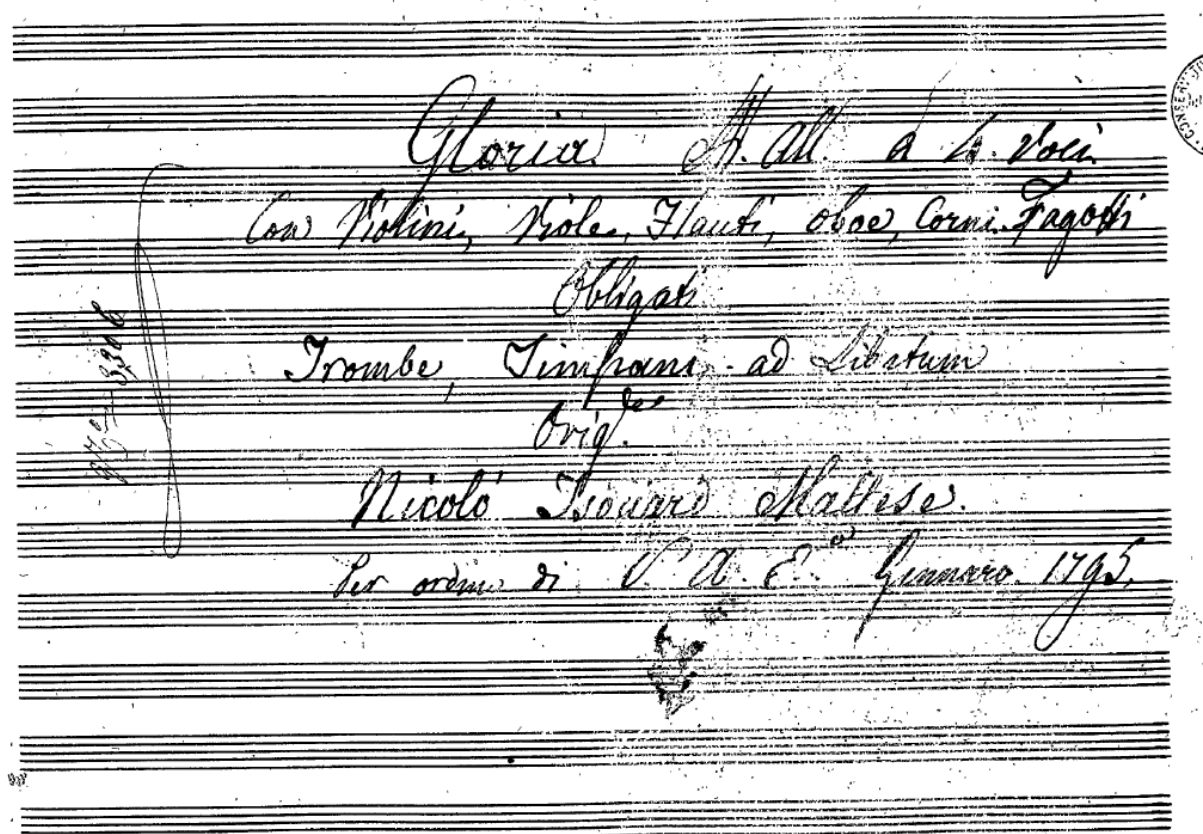 Gloria. All. a 4. Voci.
Con Violini, Viole, Flauti, oboe, Corni. Fagotti
Obligati
Trombe, Timpani. ad Libitum
Orig.le
Nicoló Isouard Maltese.
Per ordine di S. A. E. Gennaro. 1795.